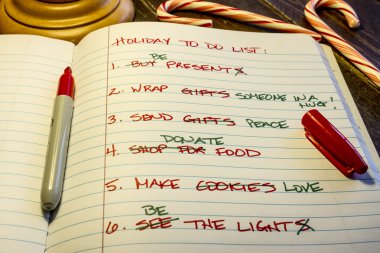 HOLIDAY TO DO LIST:
BE
1. BUY PRESENTS
2. WRAP GIFTS SOMEONE IN A
HUG!
3. SEND GIFTS PEACE
DONATE
4. SHOP FOR FOOD
5. MAKE COOKIES LOVE
BE
6. SEE THE LIGHTS